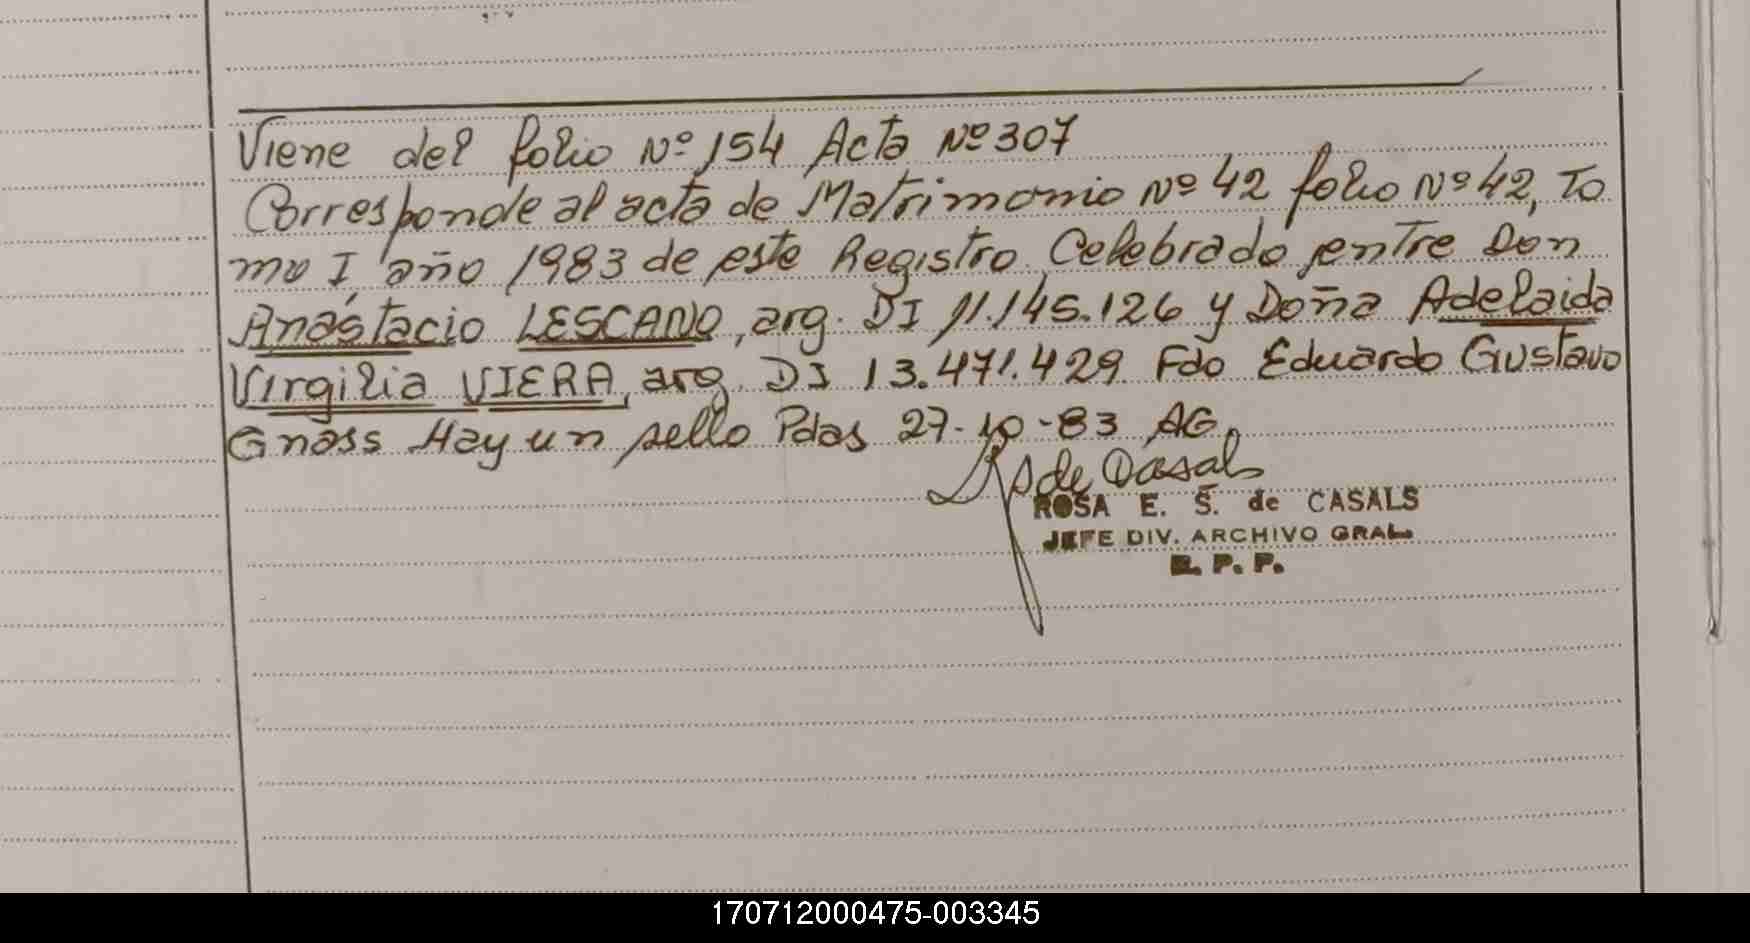 Viene del folio Nº 154 Acta Nº 307
Corresponde al acta de Matrimonio Nº 42 folio Nº 42, To
mo I año 1983 de este Registro Celebrado entre Don
Anástacio LESCANO, arg. DI 11.145.126 y Doña Adelaida
Virgilia VIERA, arg. DI 13.471.429 Fdo Eduardo Gustavo
Gnass Hay un sello Pdas 27-10-83 AG
S de Casals
ROSA E. S. de CASALS
JEFE DIV. ARCHIVO GRAL
R. P. P.
170712000475-003345